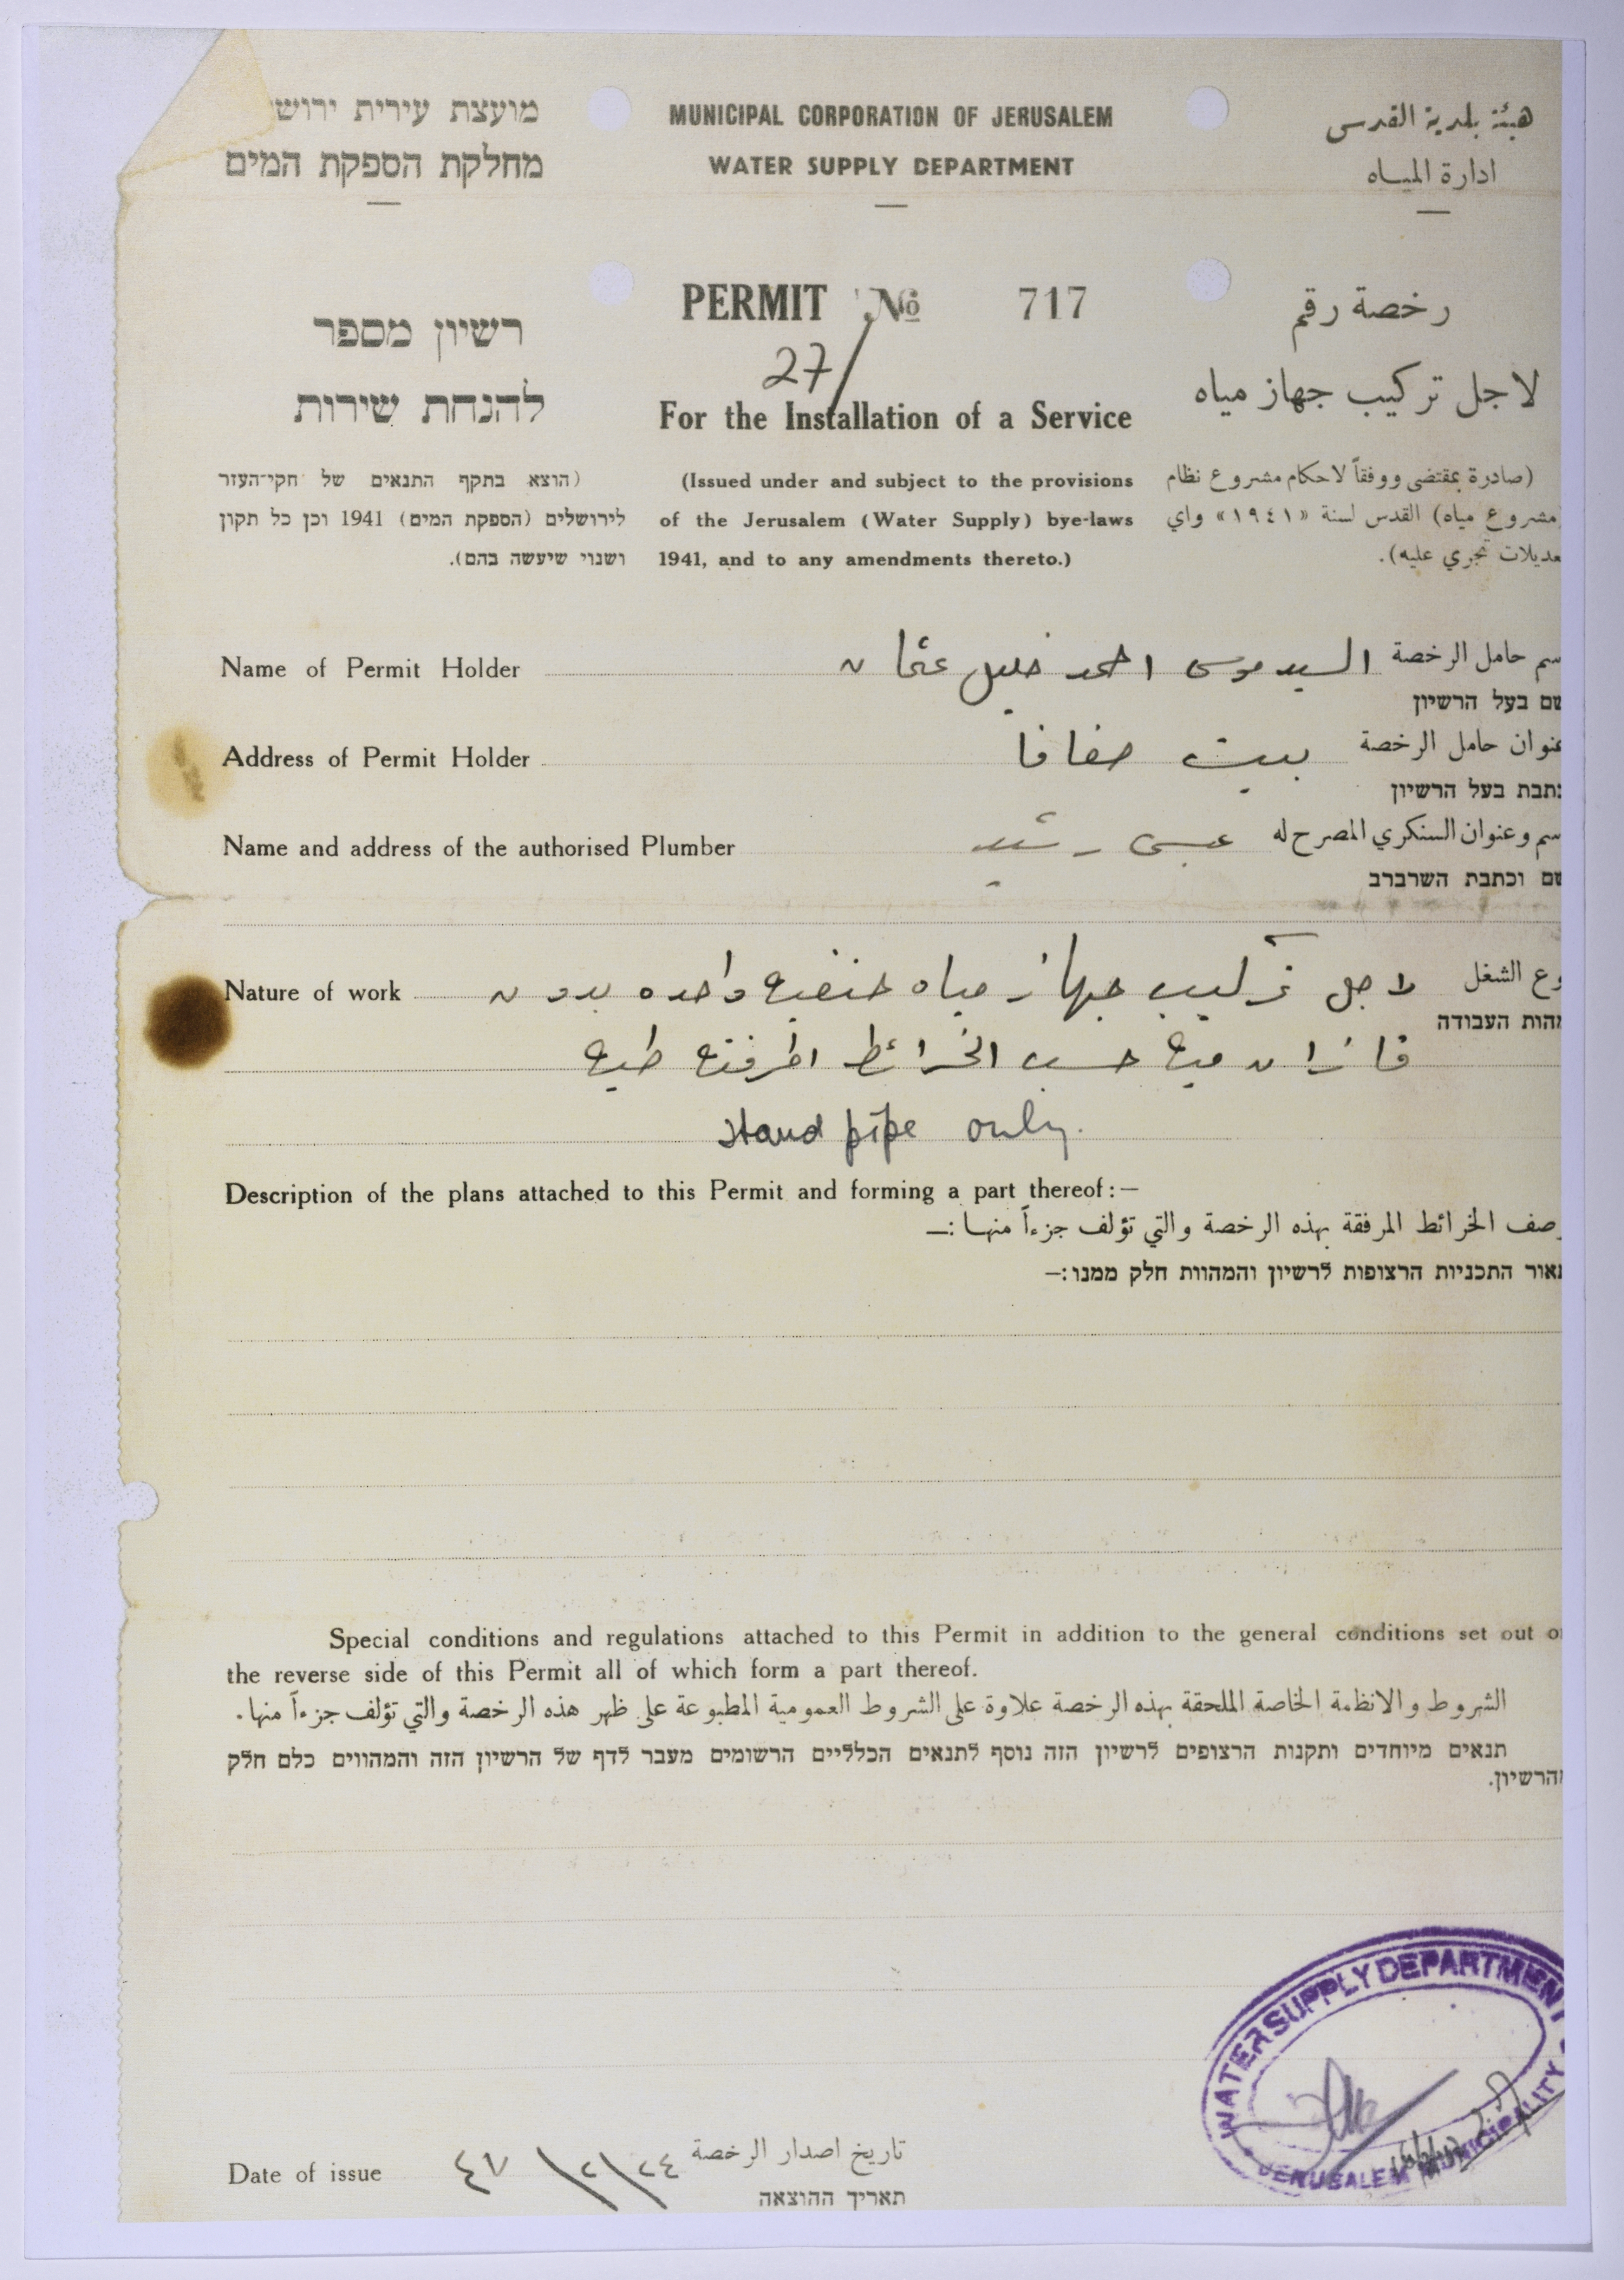 מועצת עירית ירוש
מחלקת הספקת המים
MUNICIPAL CORPORATION OF JERUSALEM
WATER SUPPLY DEPARTMENT
هيئة بلدية القدس
ادارة المياه
רשיון מספר
להנחת שירות
PERMIT No 717
27/
For the Installation of a Service
رخصة رقم
لاجل تركيب جهاز مياه
(הוצא בתקף התנאים של חקי־העזר
לירושלים (הספקת המים) 1941 וכן כל תקון
ושנוי שיעשה בהם).
(Issued under and subject to the provisions
of the Jerusalem (Water Supply) bye-laws
1941, and to any amendments thereto.)
(صادرة بمقتضى ووفقاً لاحكام مشروع نظام
(مشروع مياه) القدس لسنة «١٩٤١» واي
عديلات تجري عليه).
Name of Permit Holder السيد موسى احمد خليل عثمان سم حامل الرخصة
שם בעל הרשיון
Address of Permit Holder بيت صفافا عنوان حامل الرخصة
תבת בעל הרשיון
Name and address of the authorised Plumber عيسى رشيد سم وعنوان السنكري المصرح له
שם וכתבת השרברב
Nature of work لاجل تركيب جهاز مياه حنفيه واحده بدون وع الشغل
מהות העבודה
قازان ميه حسب الخرائط المرفقه طيه
stand pipe only.
Description of the plans attached to this Permit and forming a part thereof:—
وصف الخرائط المرفقة بهذه الرخصة والتي تؤلف جزءاً منها :—
תאור התכניות הרצופות לרשיון והמהוות חלק ממנו:—
Special conditions and regulations attached to this Permit in addition to the general conditions set out o
the reverse side of this Permit all of which form a part thereof.
الشروط والانظمة الخاصة الملحقة بهذه الرخصة علاوة على الشروط العمومية المطبوعة على ظهر هذه الرخصة والتي تؤلف جزءاً منها .
תנאים מיוחדים ותקנות הרצופים לרשיון הזה נוסף לתנאים הכלליים הרשומים מעבר לדף של הרשיון הזה והמהווים כלם חלק
מהרשיון.
WATER SUPPLY DEPARTMENT
JERUSALEM MUNICIPALITY
Date of issue ٢٤/٢/٤٧ تاريخ اصدار الرخصة
תאריך ההוצאה